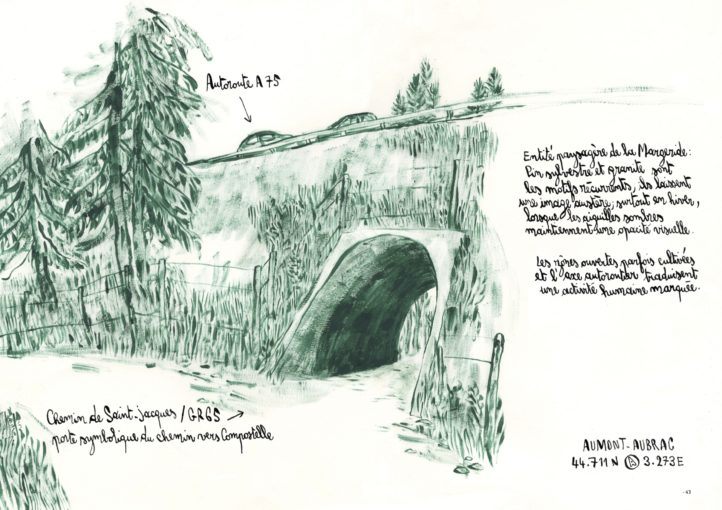 Autoroute A 75
Entité paysagère de la Margeride :
Pin sylvestre et granite sont
les motifs récurrents, ils laissent
une image austère, surtout en hiver,
lorsque les aiguilles sombres
maintiennent une opacité visuelle.
Les zones ouvertes parfois cultivées
et l'axe autoroutier traduisent
une activité humaine marquée.
Chemin de Saint-Jacques / GR65
porte symbolique du chemin vers Compostelle
AUMONT-AUBRAC
44.711 N 3.273 E
43